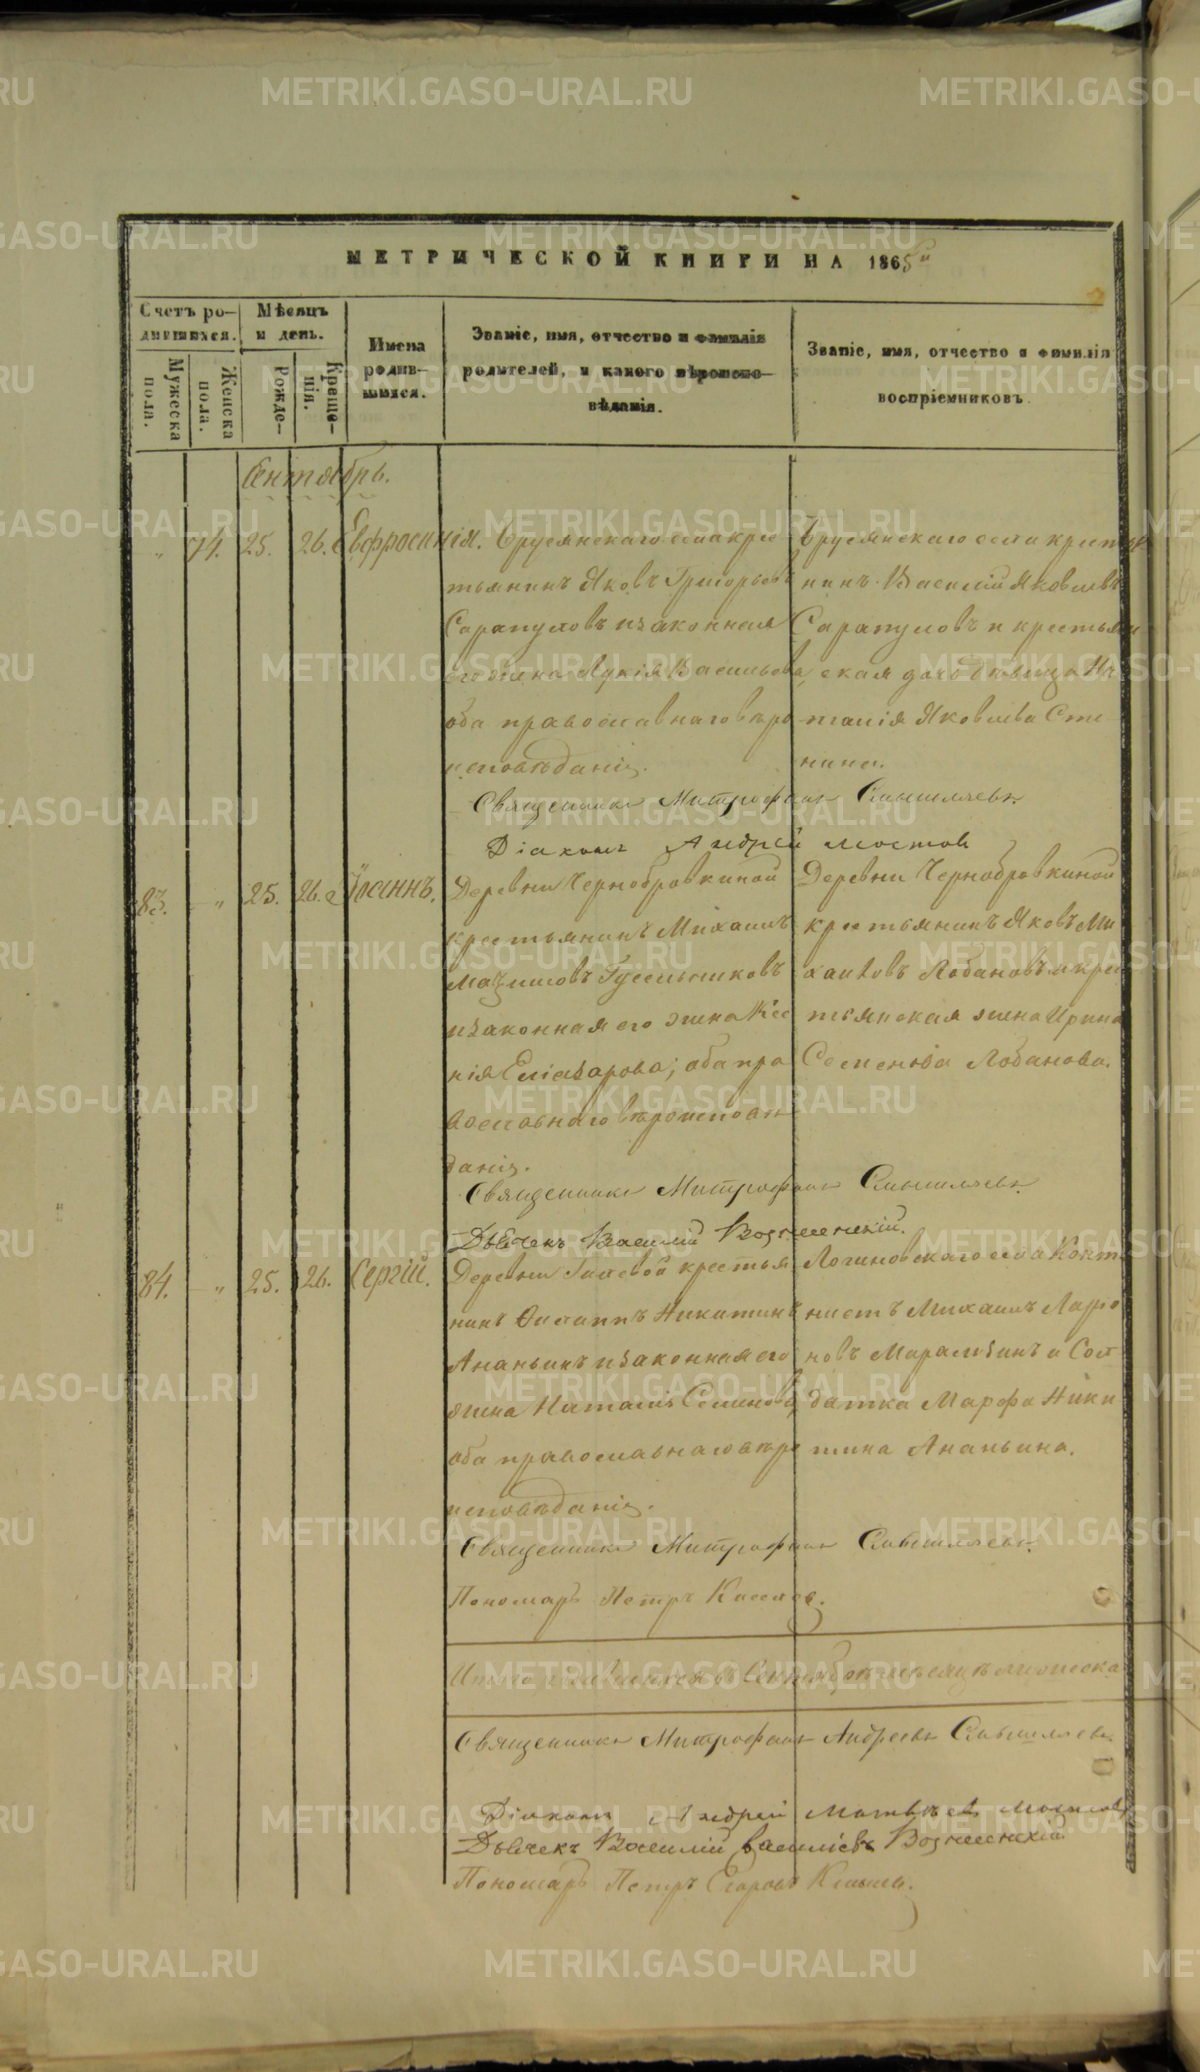 МЕТРИЧЕСКОЙ КНИГИ НА 1865й
Счетъ родившихся.
Мѣсяцъ и день.
Имена родившихся.
Званіе, имя, отчество и фамилія родителей, и какого вѣроисповѣданія.
Званіе, имя, отчество и фамилія воспріемниковъ
Мужеска пола.
Женска пола.
Рожде-
Крещенія.
Сентябрь.
" 74. 25. 26. Евфросинія.
Брусянскаго села крес
тьянинъ Яковъ Григорьевъ
Сарапуловъ и законная
его жена Лукія Васильева,
оба православнаго вѣро
исповѣданія.
Брусянскаго села крестья
нинъ Василій Яковлевъ
Сарапуловъ и крестьян
ская дочь Дѣвица На
талія Яковлева Сте-
нина.
Священникъ Митрофанъ Смышляевъ
Діаконъ Андрей
83. " 25. 26. Іоаннъ.
Деревни Чернобровкиной
крестьянинъ Михаилъ
Гусельниковъ
и законная его жена Ксе
нія Еліазарова; оба пра
вославнаго вѣроисповѣ
данія.
Деревни Чернобровкиной
крестьянинъ Яковъ Ми
хаиловъ Лобановъ и крес
тьянская жена Ирина
Семенова Лобанова.
Священникъ Митрофанъ Смышляевъ
Дьячекъ Василій Вознесенскій.
84. " 25. 26. Сергій.
Деревни Гилевой крестья
нинъ Филаппъ Никитинъ
Ананьинъ и законная его
жена Наталія Семенова,
оба православнаго вѣро
исповѣданія.
Логиновскаго села Кант
нистъ Михаилъ Ларіо
новъ Марамзинъ и Сол
датка Марфа Ники
тина Ананьина.
Священникъ Митрофанъ Смышляевъ
Пономарь Петръ Киселев.
Итого родившихся въ Сентябрѣ мѣсяцѣ мужеска
Священникъ Митрофанъ Андреевъ Смышляевъ
Діаконъ Андрей
Дьячекъ Василій Васильевъ Вознесенскій
Пономарь Петръ Егоровъ
METRIKI.GASO-URAL.RU